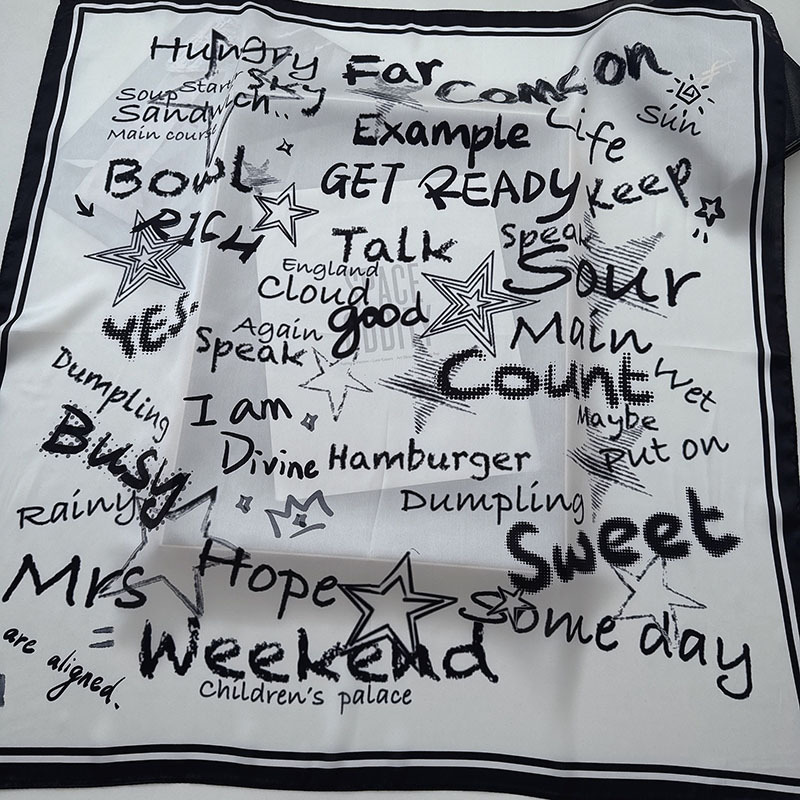 Hungry
Far
Come on
Sky
Soup
Sandwich..
Main cours
Sun
Example
Life
Bowl
GET READY
Keep
RICH
Talk
Speak
England
Sour
Cloud
SPACE
good
YES
Again
Main
Speak
Count
Wet
Dumpling
I am
Maybe
Busy
Divine
Hamburger
Put on
Rainy
Dumpling
Sweet
Mrs
Hope
Some day
are aligned.
Weekend
Children's palace